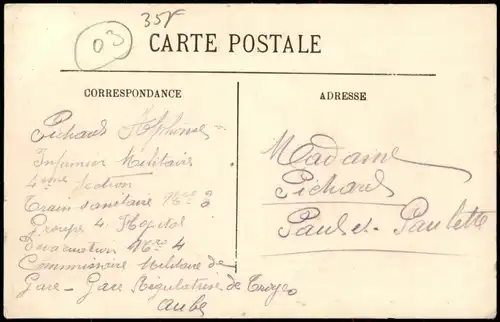 03
35F
CARTE POSTALE
CORRESPONDANCE
ADRESSE
Pichard Alphonse
Infirmier Militaire
4eme Section
Train sanitaire
Groupe 4 Hopital
Evacuation No 4
Commissaire Militaire de
Gare - Gare Régulatrice de Troyes
Aube
Madame
Pichard
Paul et Paulette